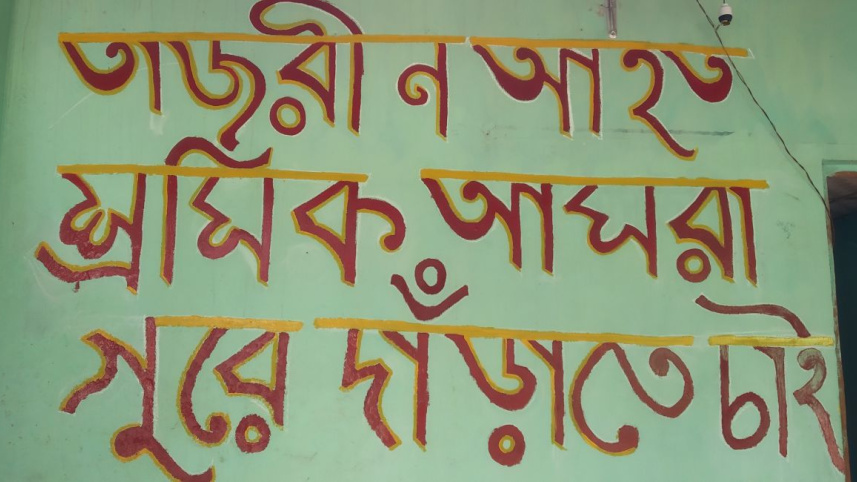 তাজরীন আহত
শ্রমিক আমরা
ঘুরে দাঁড়াতে চাই